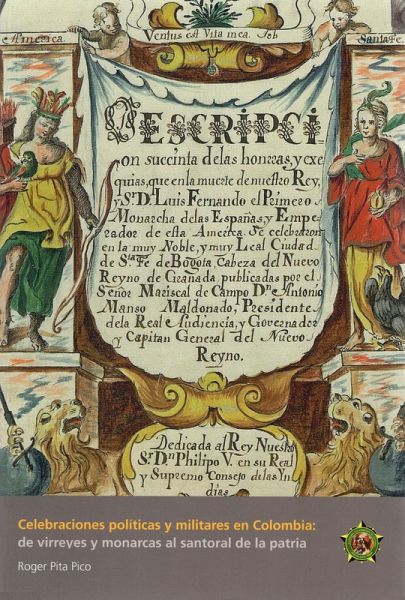 America.
Ventus est Vita mea. Job
Santafe.
Descripci
on succinta delas honrras, y exe
quias, que en la muerte de nuestro Rey,
y Sr. Dn. Luis Fernando el Primero
Monarcha delas Españas, y Empe
rador de esta America. Se celebraron
en la muy Noble, y muy Leal Ciudad
de Sta. Fe de Bogota Cabeza del Nuevo
Reyno de Granada, publicadas por el
Señor Mariscal de Campo Dn. Antonio
Manso Maldonado, Presidente
dela Real Audiencia, y Governador
y Capitan General del Nuevo
Reyno.
Dedicada al Rey Nuestro
Sr. Dn. Philipo V. en su Real
y Supremo Consejo de las Yn
dias
Celebraciones políticas y militares en Colombia:
de virreyes y monarcas al santoral de la patria
Roger Pita Pico